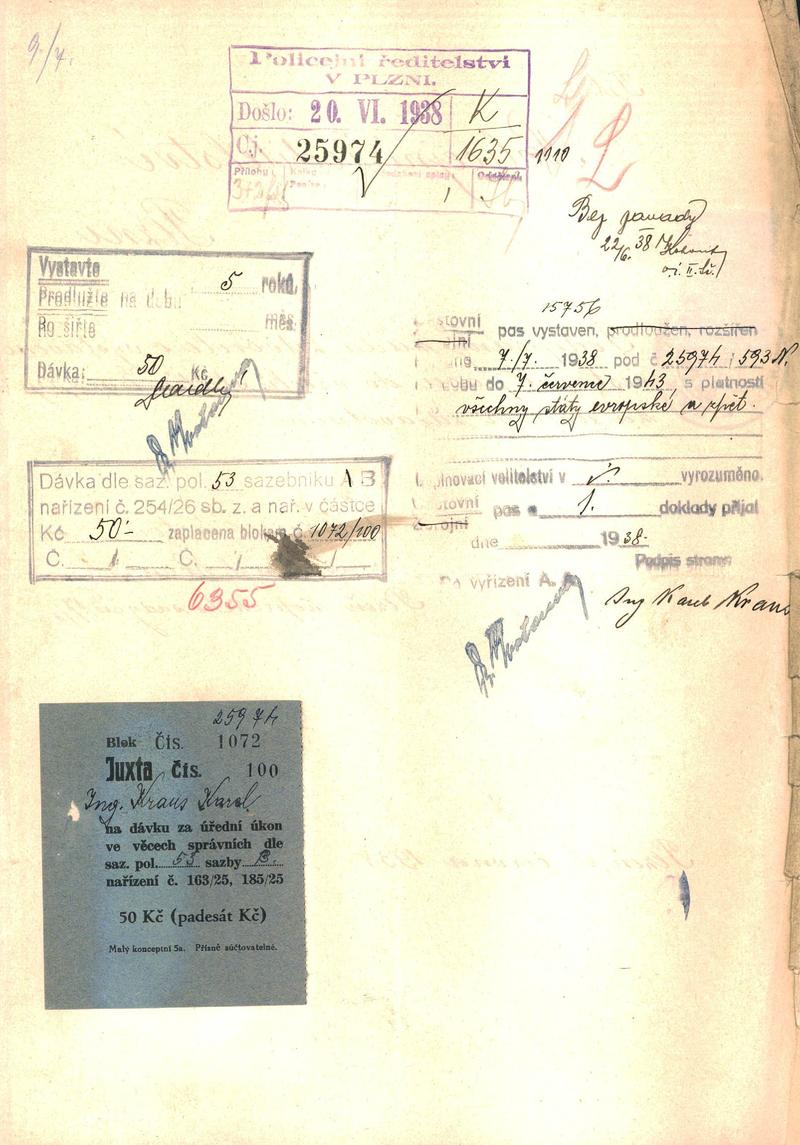 9/7.
Policejní ředitelství
V PLZNI.
Došlo: 20. VI. 1938 K
Č.j. 25974 1635 1110
Přílohy: Kolky Oddělení:
L
Bez závady
22/6. 38
Vystavte
Prodlužte na dobu 5 roků,
Rozšiřte měs.
Dávka: 50 Kč
15756
cestovní pas vystaven, prodloužen, rozšířen
dne 7./7. 1938 pod č. 25974 : 593 N.
dobu do 7. července 1943, s platností
všechny státy evropské a zpět.
Dávka dle saz. pol. 53 sazebníku A B
nařízení č. 254/26 sb. z. a nař. v částce
Kč 50.- zaplacena blokem č. 1072/100
Č. / Č. /
6355
Doplňovací velitelství v vyrozuměno.
cestovní
zbrojní pas a 1. doklady přijal
dne 1938.
Podpis strany:
Do vyřízení A. A.
Ing Karel Kraus
25974
Blok Čís. 1072
Juxta čís. 100
Ing. Kraus Karel
na dávku za úřední úkon
ve věcech správních dle
saz. pol. 53 sazby B.
nařízení č. 163/25, 185/25
50 Kč (padesát Kč)
Malý konceptní 5a. Přísně súčtovatelné.